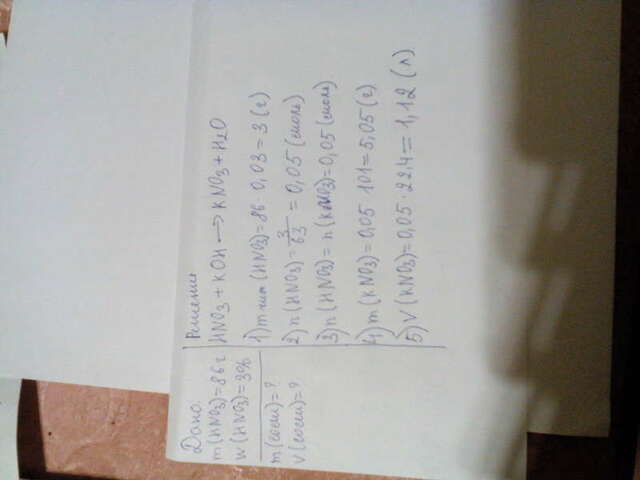 Дано:
m(HNO3)=86г
w(HNO3)=3%
m(соли)=?
V(соли)=?
Решение
HNO3+KOH→KNO3+H2O
1) m чист (HNO3)=86·0,03=3(г)
2) n(HNO3)=3/63=0,05(моль)
3) n(HNO3)=n(KNO3)=0,05(моль)
4) m(KNO3)=0,05·101=5,05(г)
5) V(KNO3)=0,05·22,4=1,12(л)